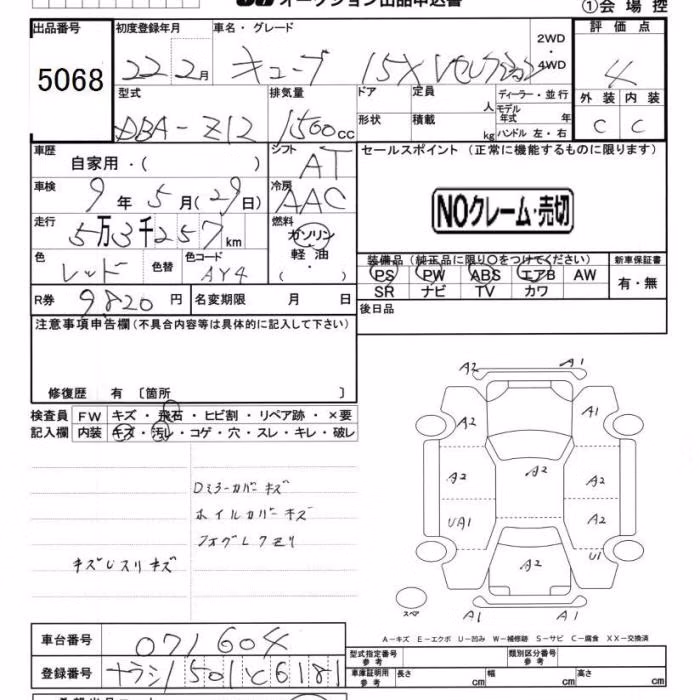 オークション出品申込書
①会場控
出品番号 初度登録年月 車名・グレード 2WD・4WD 評価点
5068 22 2月 キューブ 15X Vセレクション 4
型式 排気量 ドア 定員 人 ディーラー・並行 外装 内装
DBA-Z12 1500cc 形状 積載 kg モデル年式 年 ハンドル 左・右 C C
車歴 自家用・( ) シフト AT セールスポイント (正常に機能するものに限ります)
車検 9年5月(29日) 冷房 AAC
NOクレーム・売切
走行 5万3千257km 燃料 ガソリン 軽油 ( ・ )
色 レッド 色替 色コード AY4
装備品 (純正品に限り○をつけてください) 新車保証書
PS PW ABS エアB AW 有・無
SR ナビ TV カワ
R券 9820円 名変期限 月 日
後日品
注意事項申告欄(不具合内容等は具体的に記入して下さい)
修復歴 有 〔箇所 〕
検査員 FW キズ・飛石・ヒビ割・リペア跡・×要
記入欄 内装 キズ・汚レ・コゲ・穴・スレ・キレ・破レ
Dミラーカバーキズ
ホイルカバーキズ
フォグレクモリ
キズUスリキズ
A2 A1
A2 A1
A2 A2 A2
UA1 A2
A2 U1
スペア A1 A1
A-キズ E-エクボ U-凹み W-補修跡 S-サビ C-腐食 XX-交換済
車台番号 071604
型式指定番号 参考 類別区分番号 参考
登録番号 ナラシ1501ど6181
車庫証明用 参考 長さ cm 幅 cm 高さ cm